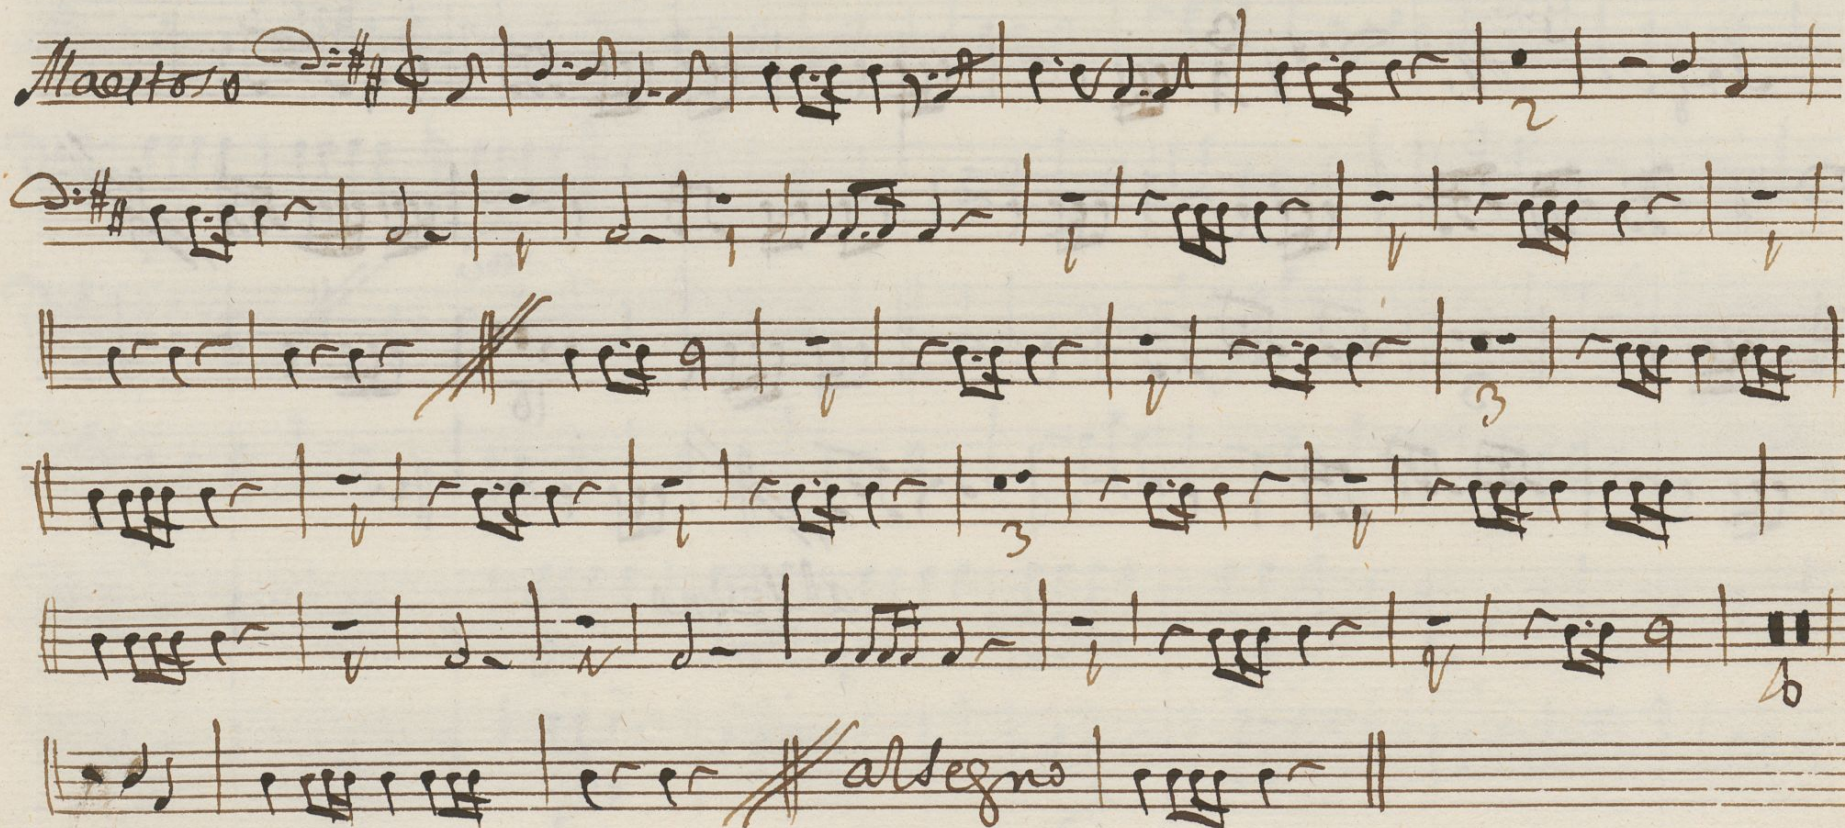 Maestoso
2
1 1 1 1 1
1 1 3
1 1 3 1
1 1 1 1 16
al segno